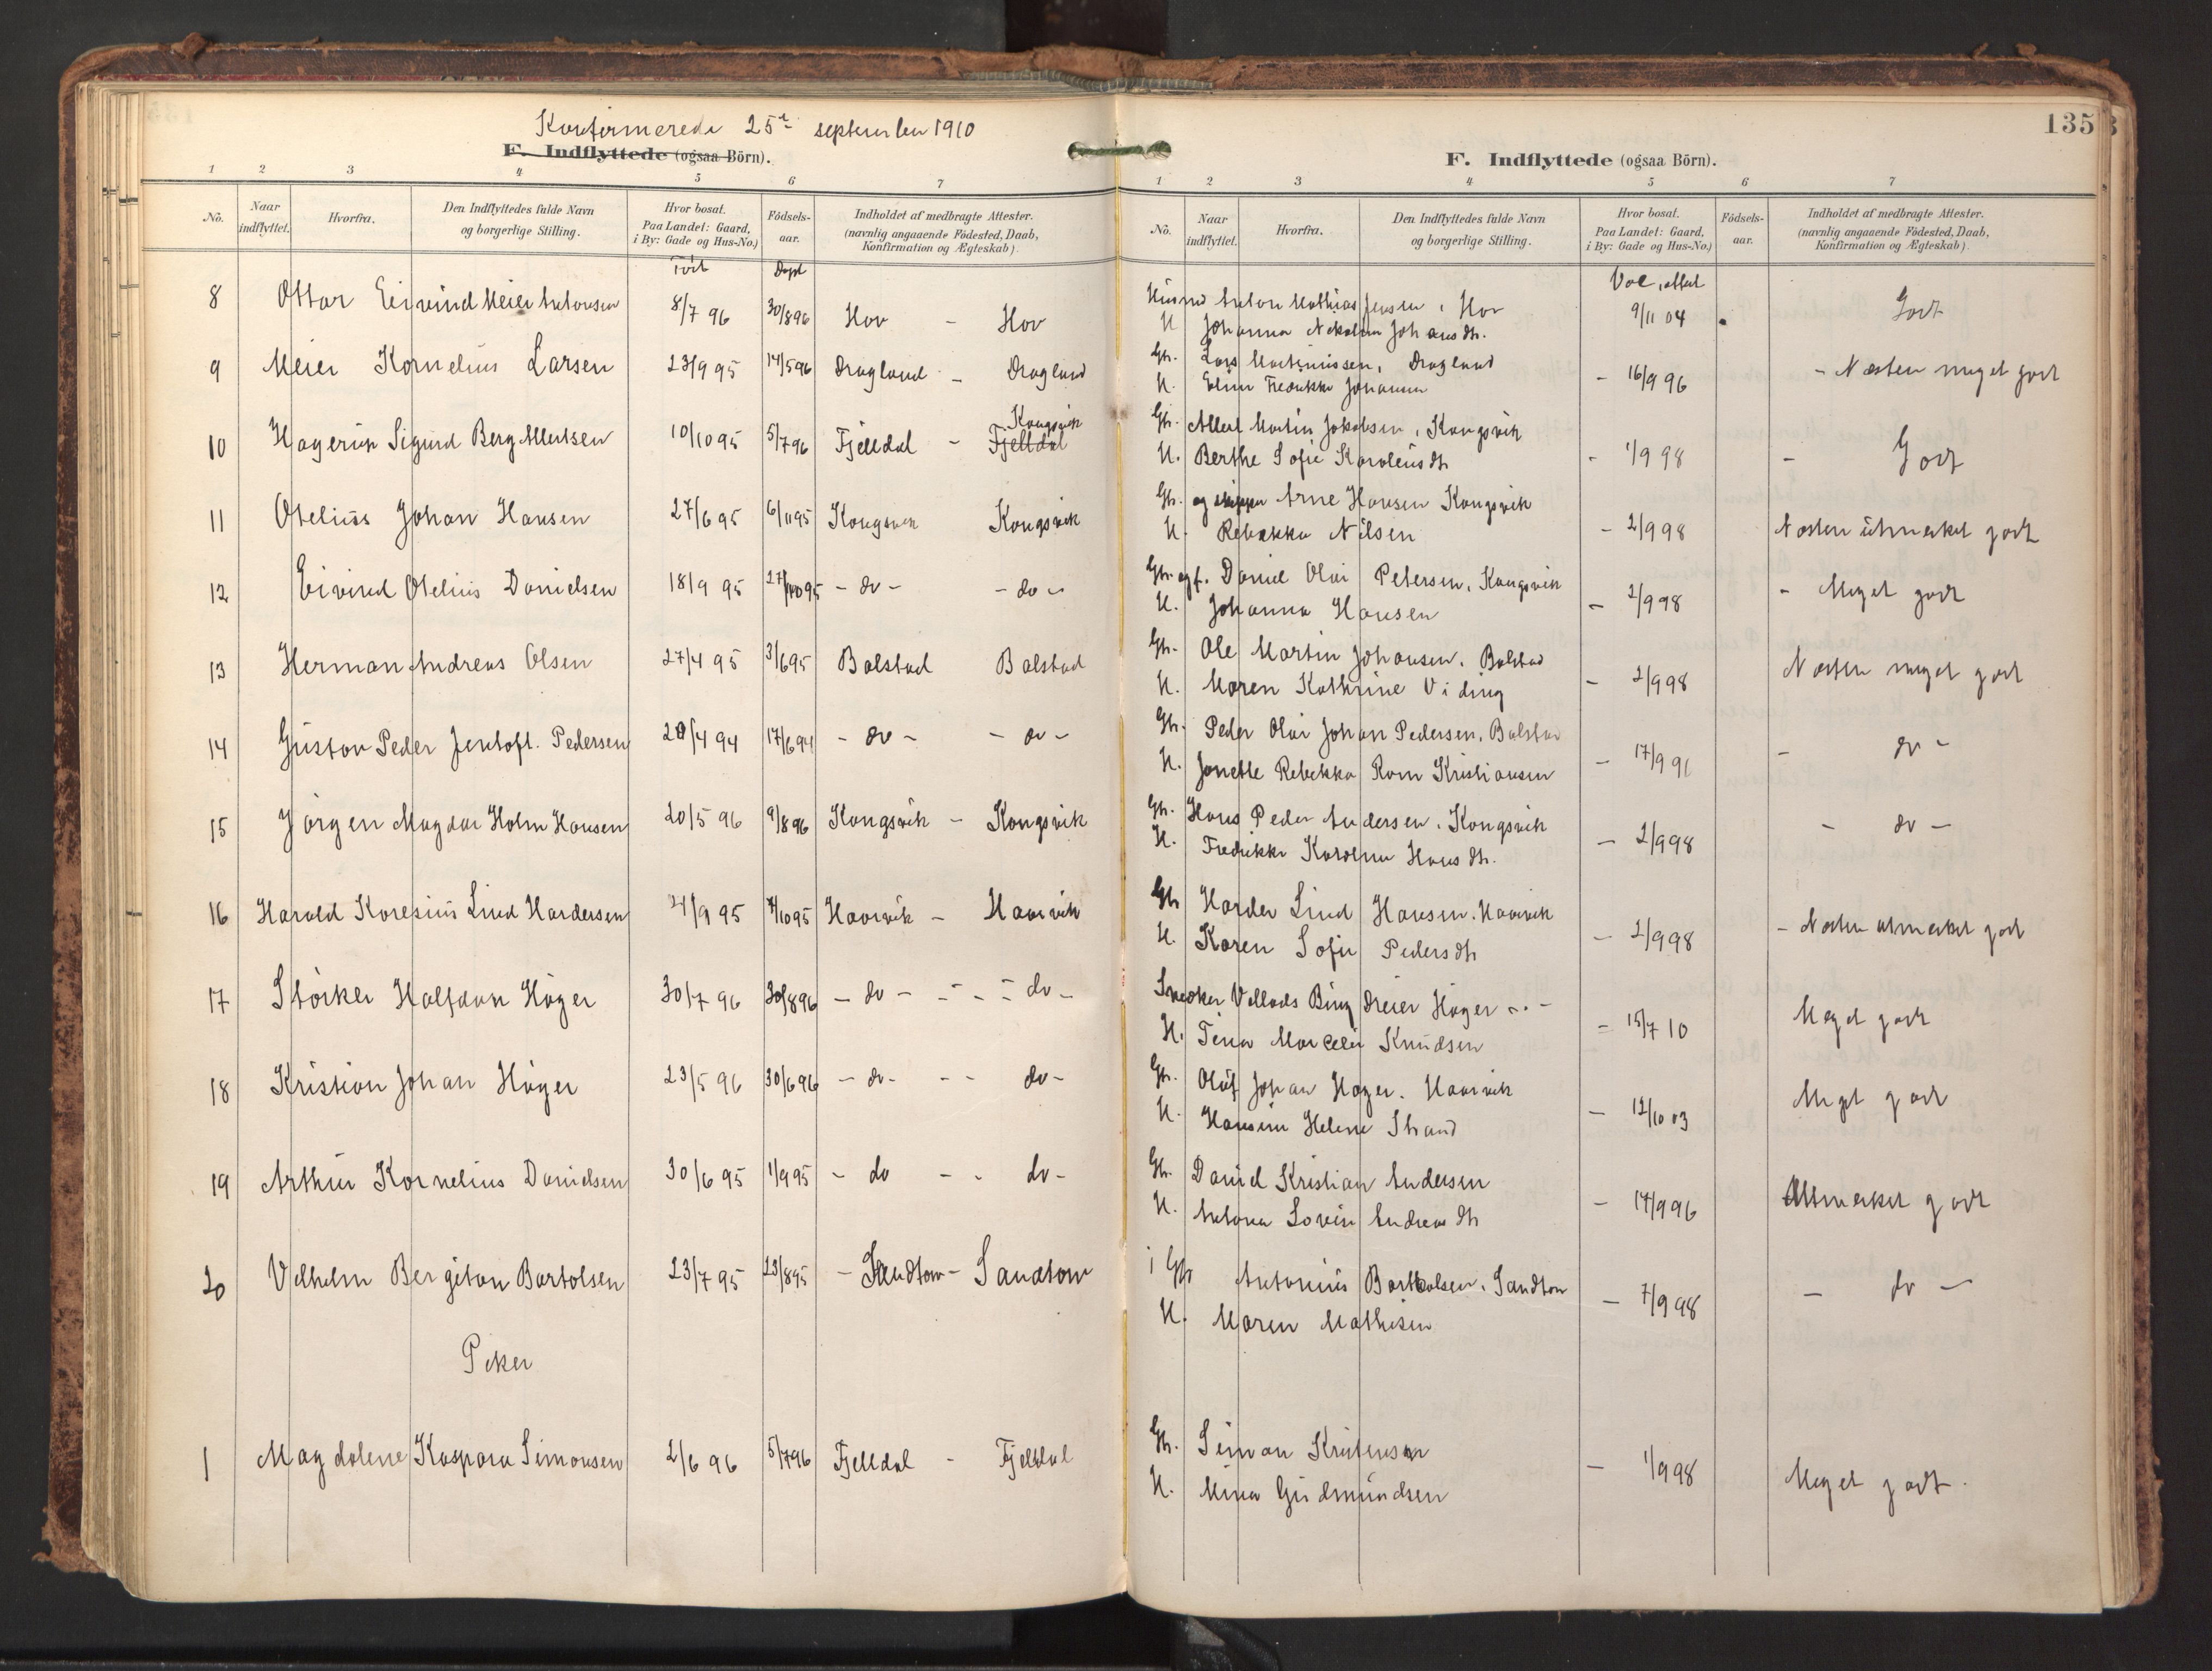 Konfirmerede 25de september 1910
F. Indflyttede (ogsaa Börn).
1 2 3 4 5 6 7
No. Naar indflyttet. Hvorfra. Den Indflyttedes fulde Navn og borgerlige Stilling. Hvor bosat. Paa Landet: Gaard, i By: Gade og Hus-No.) Födsels-aar. Indholdet af medbragte Attester. (navnlig angaaende Födested, Daab, Konfirmation og Ægteskab).
Född Döpt
8 Ottar Eivind Meier Antonsen 8/7 96 30/8 96 Hov - Hov
9 Meier Kornelius Larsen 23/9 95 14/5 96 Dragland - Dragland
Kongsvik
10 Hagerup Sigurd Berg Albertsen 10/10 95 5/7 96 Fjelldal - Fjelldal
11 Otelius Johan Hansen 27/6 95 6/11 95 Kongsvik Kongsvik
12 Eivind Otelius Danielsen 18/9 95 27/10 95 - do - - do -
13 Herman Andreas Olsen 27/4 95 3/6 95 Balstad Balstad
14 Gustav Peder Jentoft. Pedersen 28/4 94 17/6 94 - do - - do -
15 Jörgen Magdar Holm Hansen 20/5 96 9/8 96 Kongsvik - Kongsvik
16 Harald Koresius Lind Hardersen 21/9 95 7/10 95 Haarvik - Haarvik
17 Störker Halfdan Höger 30/7 96 30/8 96 - do - - - do -
18 Kristian Johan Höger 23/5 96 30/6 96 - do - - - do -
19 Arthur Kornelius Danielsen 30/6 95 1/9 95 - do - - do -
20 Vilhelm Bergiton Bartolsen 23/7 95 23/8 95 - Sandtorv - Sandtorv
Piker
1 Magdalene Kaspara Simonsen 2/6 96 5/7 96 Fjelldal - Fjelldal
135
F. Indflyttede (ogsaa Börn).
1 2 3 4 5 6 7
No. Naar indflyttet. Hvorfra. Den Indflyttedes fulde Navn og borgerlige Stilling. Hvor bosat. Paa Landet: Gaard, i By: Gade og Hus-No.) Födsels-aar. Indholdet af medbragte Attester. (navnlig angaaende Födested, Daab, Konfirmation og Ægteskab).
Vac. attest
Husmd Anton Mathias Jensen, Hov 9/11 04 Godt
H Johanna Nekolina Johansdtr.
Gbr. Lars Martinussen, Dragland
H. Elina Fredrikke Johansen - 16/9 96 - Næsten meget godt
Gbr. Albert Martin Jakobsen, Kongsvik
H. Berthe Sofie Karoliusdtr - 1/9 98 - Godt
Gbr. og skipper Arne Hansen Kongsvik
H. Rebekka Nilsen - 2/9 98 Næsten utmerket godt
Gbr. og f. Daniel Olai Petersen, Kongsvik
H. Johanna Hansen - 2/9 98 - Meget godt
Gbr. Ole Martin Johansen. Balstad
H. Maren Kathrine Viding - 2/9 98 Næsten meget godt
Gbr. Peder Olai Johan Pedersen, Balstad
H. Jonette Rebekka Rom Kristiansen - 17/9 91 - do -
Gbr. Hans Peder Andersen, Kongsvik
H. Fredrikke Karolina Hansdtr. - 2/9 98 - do -
Gbr Harder Lind Hansen. Haarvik
H. Karen Sofie Pedersdtr - 2/9 98 - Næsten utmerket godt
Snedker Vellads Bing Dreier Höger - . -
H. Tina Marcelie Knudsen - 15/7 10 Meget godt
Gbr. Oluf Johan Höger. Haarvik
H. Hansine Helene Strand - 12/10 03 Meget godt
Gbr. Daniel Kristian Andersen
H. Antona Lovise Andreasdtr - 14/9 96 Utmerket godt
i Gbr Antonius Bartholsen, Sandtorv
H. Maren Mathisen - 7/9 98 - do -
Gbr. Simon Kristensen
H. Mina Gudmundsen - 1/9 98 Meget godt.